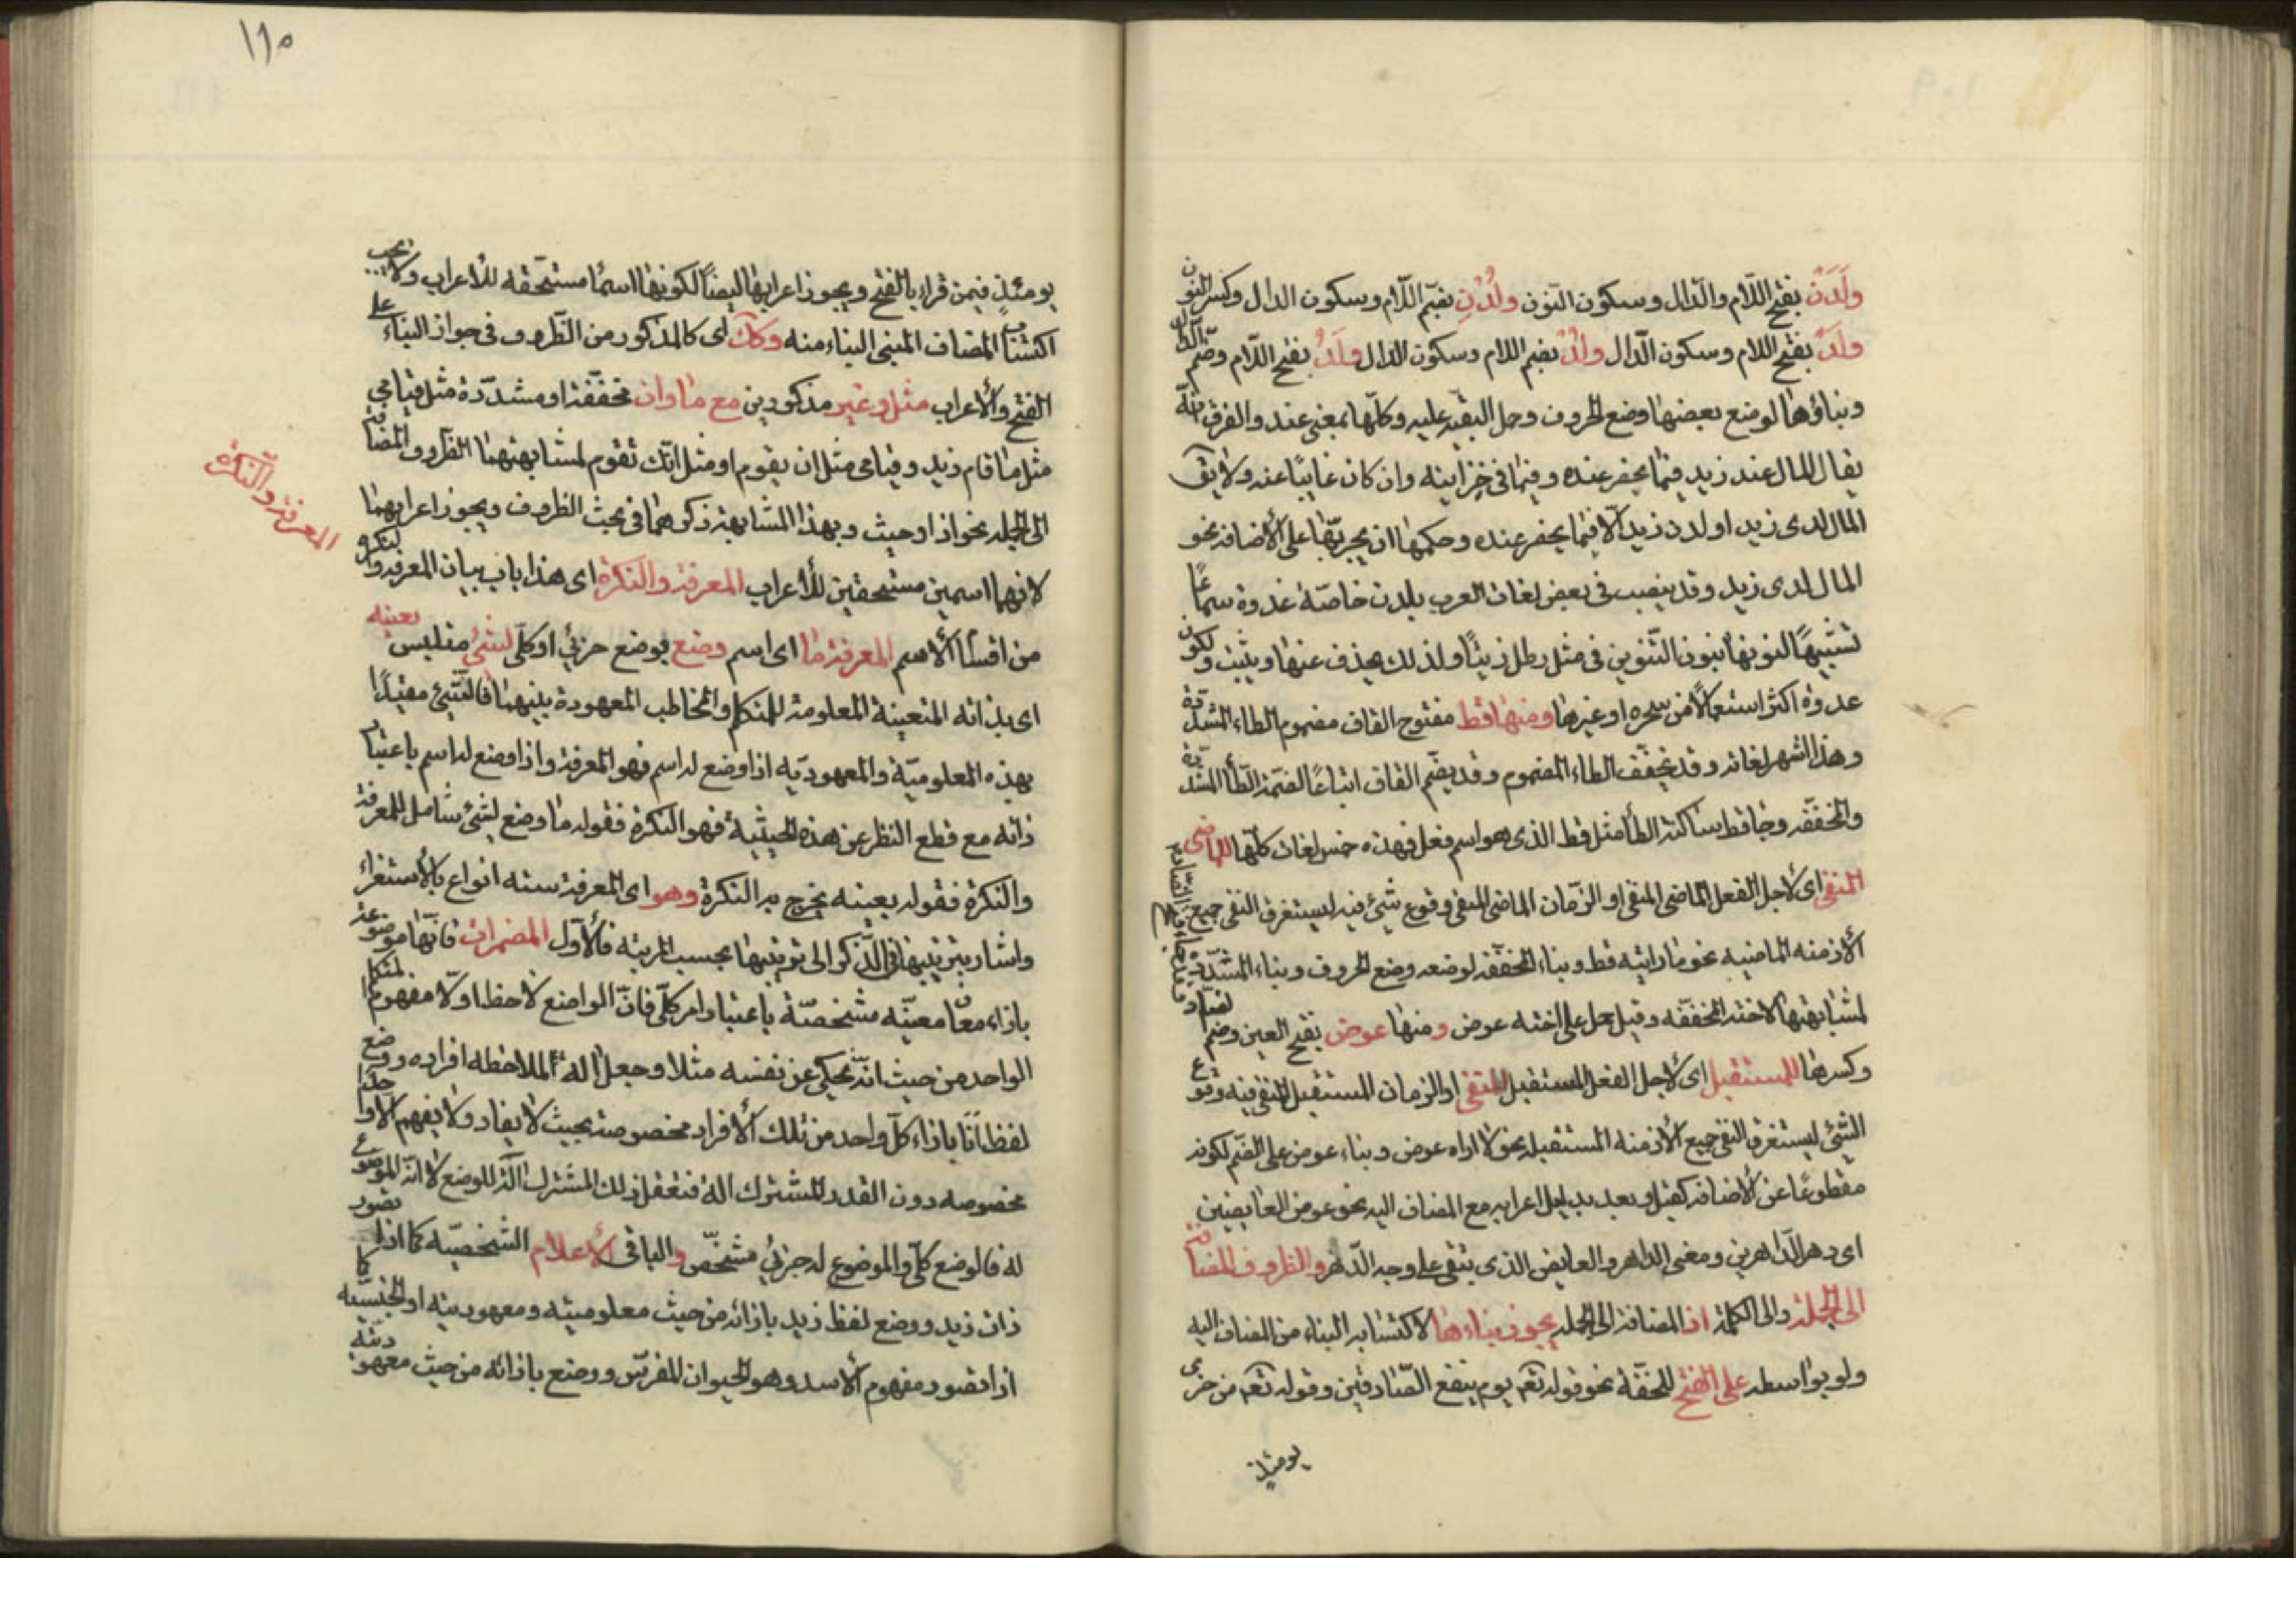 ولَدَنْ بفتح اللام والدال وسكون النون ولُدْنِ بضم اللام وسكون الدال وكسر النون
ولَدْ بفتح اللام وسكون الدال ولُدْ بضم اللام وسكون الدال ولَدُ بفتح اللام وضم الدال
وبناؤها لوضع بعضها وضع الحروف وحمل البقية عليه وكلها بمعنى عند والفرق انه
يقال المال عند زيد فيما يحضر عنده وفيما في خزاينه وان كان غايبًا عنه ولا يق
المال لدى زيد او لدن زيد الا فيما يحضر عنده وحكمها ان يجر بها على الاضافة نحو
المال لدى زيد وقد ينصب في بعض لغات العرب بلدن خاصة غدوة سماعًا
تشبيهًا لنونها بنون التنوين في مثل رطل زيتًا ولذلك يحذف عنها ويثبت ولكون
غدوة اكثر استعمالًا من سحره او غيرها ومنها قط مفتوح القاف مضموم الطاء المشددة
وهذا اشهر لغاته وقد يخفف الطاء المضموم وقد يضم القاف اتباعًا لضمة الطاء المشددة
والمخففه وجا قط ساكنة الطا مثل قط الذي هو اسم فعل فهذه خمس لغات كلها للماضي
المنفي اي لاجل الفعل الماضي المنفي او الزمان الماضي المنفي وقوع شيء فيه ليستغرق النفي جميع
الازمنه الماضيه نحو ما رايته قط وبناء المخففه لوضعه وضع الحروف وبناء المشددة
لمشابهتها لاخته المخففه وقيل حمل على اخته عوض ومنها عوض بفتح العين وضم
وكسرها للمستقبل اي لاجل الفعل المستقبل المنفي او الزمان المستقبل المنفي فيه وقوع
الشيء ليستغرق النفي جميع الازمنه المستقبله نحو لا اراه عوض وبناء عوض على الضم لكونه
مقطوعًا عن الاضافة كقبل وبعد بدليل اعرابه مع المضاف اليه نحو عوض العايضين
اي دهر الداهرين ومعنى الداهر والعايض الذي يبقى على وجه الدهر والظروف المضافة
الى الجملة والى الكلمة اذ المضافة الى الجمله يجوز بناءها لاكتسابه البناء من المضاف اليه
ولو بواسطه على الفتح للخفّة نحو قوله تع يوم ينفع الصادقين وقوله تع من خزي
يومئذ
١١٠
يومئذٍ فيمن قراء بالفتح ويجوز اعرابها ايضًا لكونها اسمًا مستحقه للاعراب ولا يجب
اكتساب المضاف المبني البناء منه وكذلك اي كالمذكور من الظروف في جواز البناء على
الفتح والاعراب مثل وغير مذكورين مع ما وان مخففة او مشددة مثل قيامي
مثل ما قام زيد وقيامي مثل ان يقوم او مثل انك تقوم لمشابهتهما الظروف المضافة
الى الجمله نحو اذ او حيث وبهذا المشابهة ذكرهما في بحث الظروف ويجوز اعرابهما
لانهما اسمين مستحقين للاعراب المعرفة والنكرة اي هذا باب بيان المعرفة والنكرة
المعرفة والنكرة
من اقسام الاسم المعرفة ما اي اسم وضع بوضع جزئي او كلي لشيء متلبس بعينه
اي بذاته المتعينة المعلومة للمتكلم والمخاطب المعهودة بينهما فالشيء مقيدًا
بهذه المعلومية والمعهوديه اذا وضع له اسم فهو المعرفة واذا وضع له اسم باعتبار
ذاته مع قطع النظر عن هذه الحيثية فهو النكرة فقوله ما وضع لشيء شامل للمعرفة
والنكرة فقوله بعينه يخرج به النكرة وهو اي المعرفة سته انواع بالاستقراء
واشار بترتيبها في الذكر الى ترتيبها بحسب المرتبه فالاول المضمرات فانها موضوعة
بازاء معان معينه مشخصة باعتبار امر كلي فان الواضع لاحظ اولا مفهوم المتكلم
الواحد من حيث انه يحكي عن نفسه مثلا وجعل اله لملاحظه افراده ووضع
لفظ انا بازاء كل واحد من تلك الافراد مخصوصة بحيث لا يفاد ولا يفهم الا واحدًا
مخصوصه دون القدر المشترك اله فتعقل ذلك المشترك اله للوضع لا انه الموضوع
له فالوضع كلي والموضوع له جزئي مشخص والباقي الاعلام الشخصيه كما اذا تصور
ذات زيد ووضع لفظ زيد بازائه من حيث معلوميته ومعهوديته او الجنسيه كما
اذا تصور مفهوم الاسد وهو الحيوان المفترس ووضع بازائه من حيث معهوديته